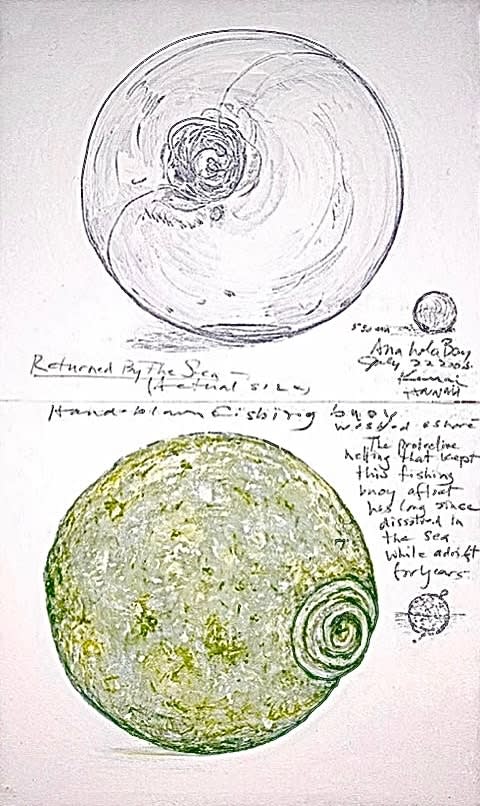 Returned By The Sea –
(Actual size)
5:30 am
Anahola Bay
July 22 2005
Kauai
Hawaii
Hand-blown Fishing buoy
washed ashore
The protective
netting that kept
this fishing
buoy afloat
has long since
dissolved in
the Sea
while adrift
for years